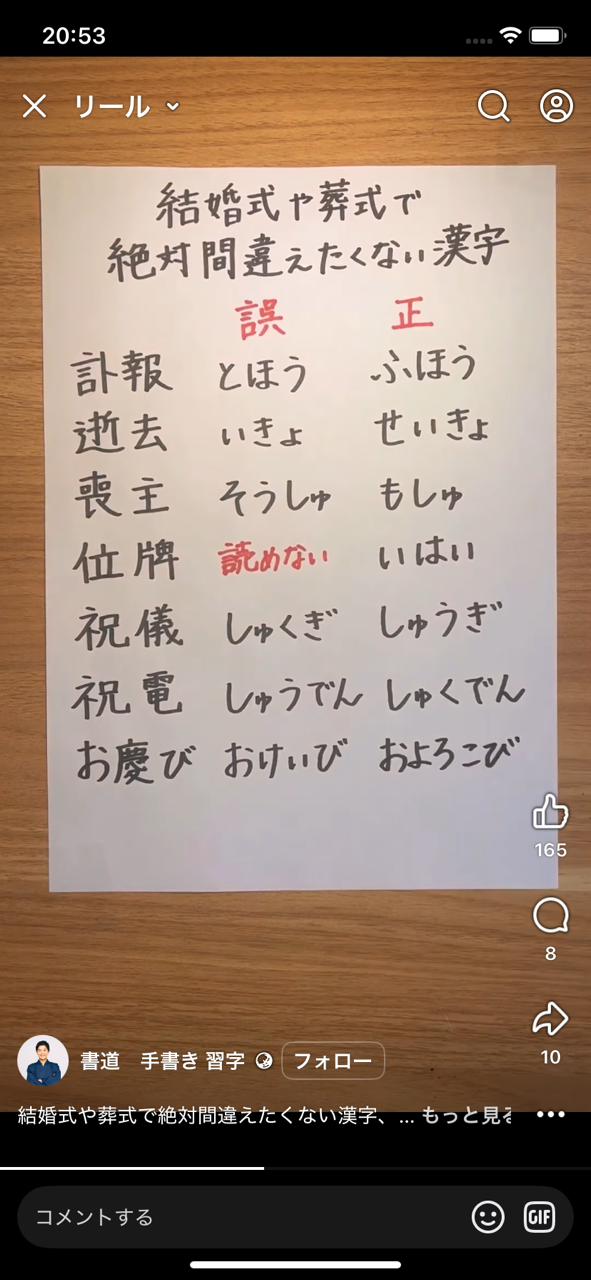 20:53
リール
結婚式や葬式で
絶対間違えたくない漢字
誤 正
訃報 とほう ふほう
逝去 いきょ せいきょ
喪主 そうしゅ もしゅ
位牌 読めない いはい
祝儀 しゅくぎ しゅうぎ
祝電 しゅうでん しゅくでん
お慶び おけいび およろこび
165
8
10
書道 手書き 習字 フォロー
結婚式や葬式で絶対間違えたくない漢字、... もっと見る
コメントする GIF